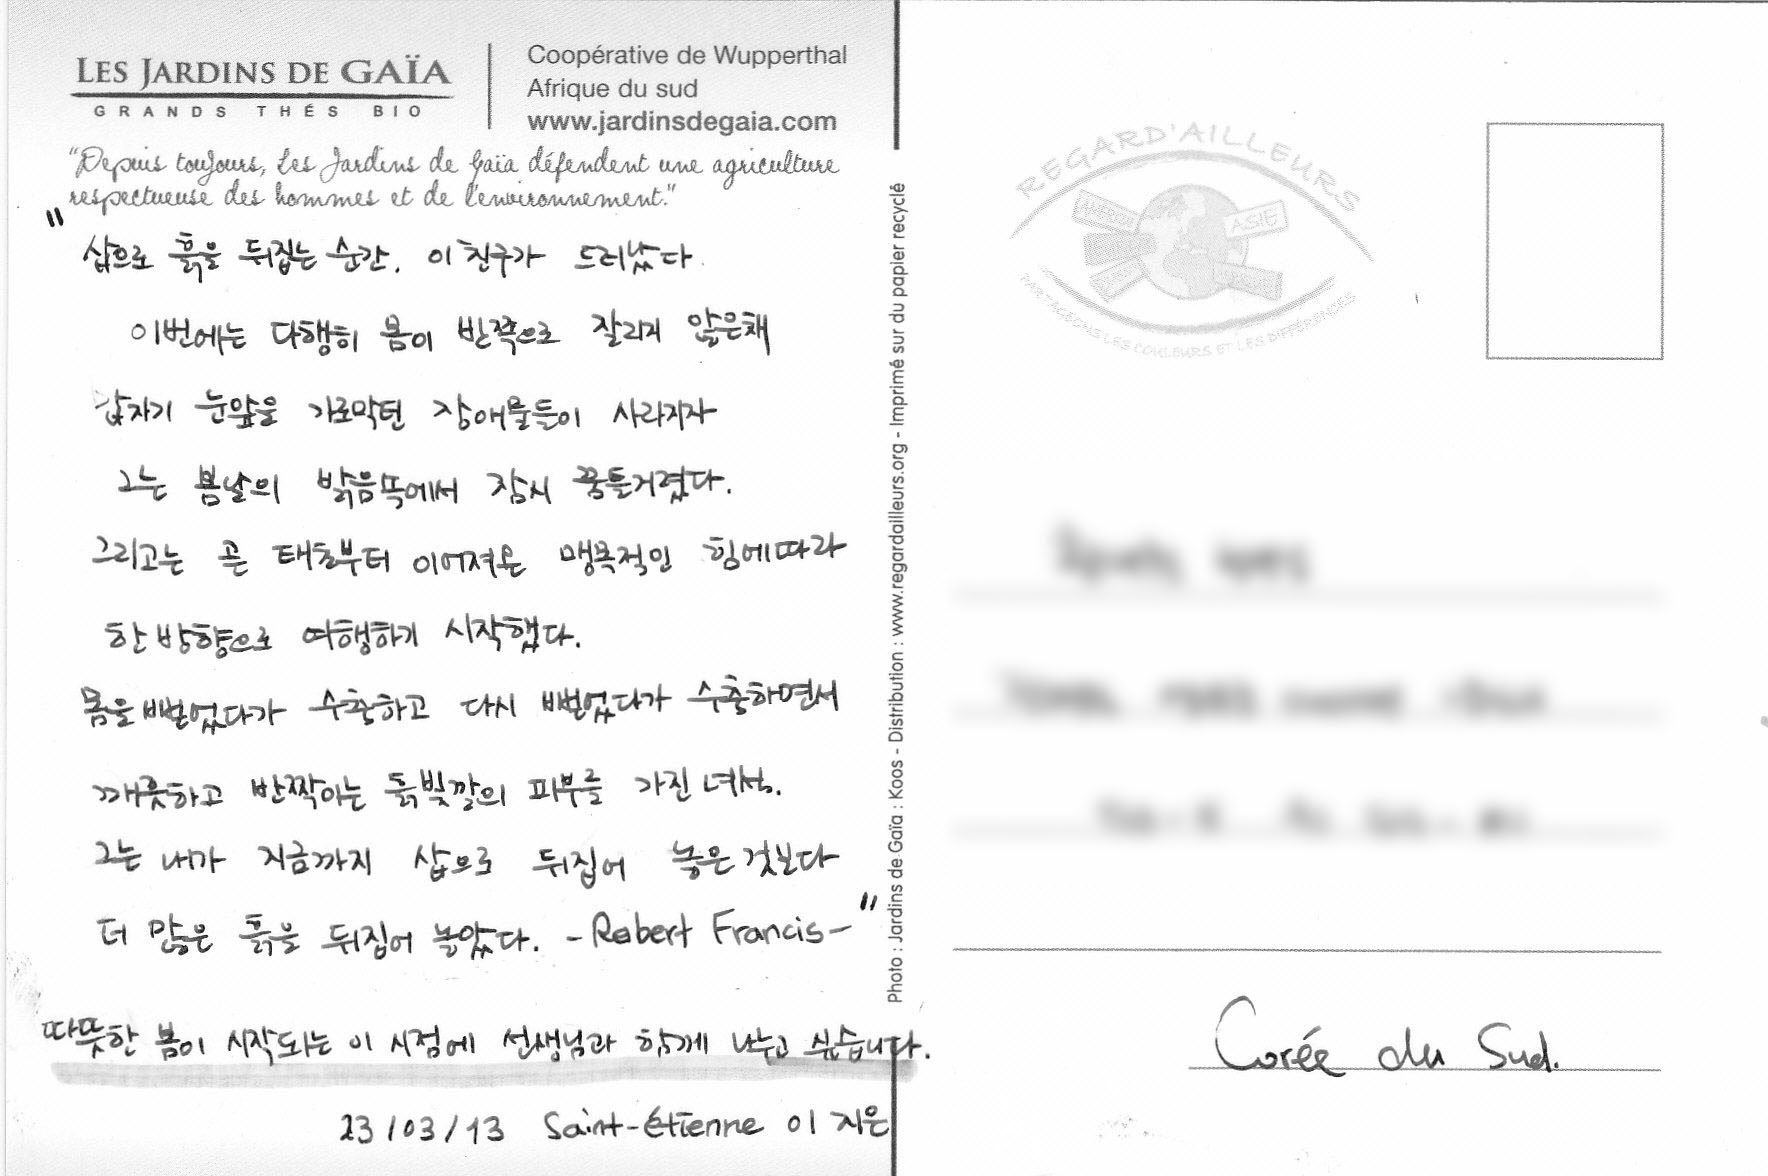 LES JARDINS DE GAÏA
GRANDS THÉS BIO
Coopérative de Wupperthal
Afrique du sud
www.jardinsdegaia.com
"Depuis toujours, Les Jardins de Gaïa défendent une agriculture
respectueuse des hommes et de l'environnement."
"삽으로 흙을 뒤집는 순간, 이 친구가 드러났다
이번에는 다행히 몸이 반쪽으로 잘리지 않은채
갑자기 눈앞을 가로막던 장애물들이 사라지자
그는 봄날의 밝음 쪽에서 잠시 꿈틀거렸다.
그리고는 곧 태초부터 이어져온 맹목적인 힘에따라
한 방향으로 여행하기 시작했다.
몸을 뻗었다가 수축하고 다시 뻗었다가 수축하면서
깨끗하고 반짝이는 흙빛깔의 피부를 가진 녀석.
그는 내가 지금까지 삽으로 뒤집어 놓은 것보다
더 많은 흙을 뒤집어 놓았다. -Robert Francis-"
따뜻한 봄이 시작되는 이 시점에 선생님과 함께 나누고 싶습니다.
23/03/13 Saint-étienne 이지은
Photo : Jardins de Gaïa : Koos - Distribution : www.regardailleurs.org - Imprimé sur du papier recyclé
REGARD'AILLEURS
ASIE
PARTAGEONS LES COULEURS ET LES DIFFÉRENCES
Corée du Sud.